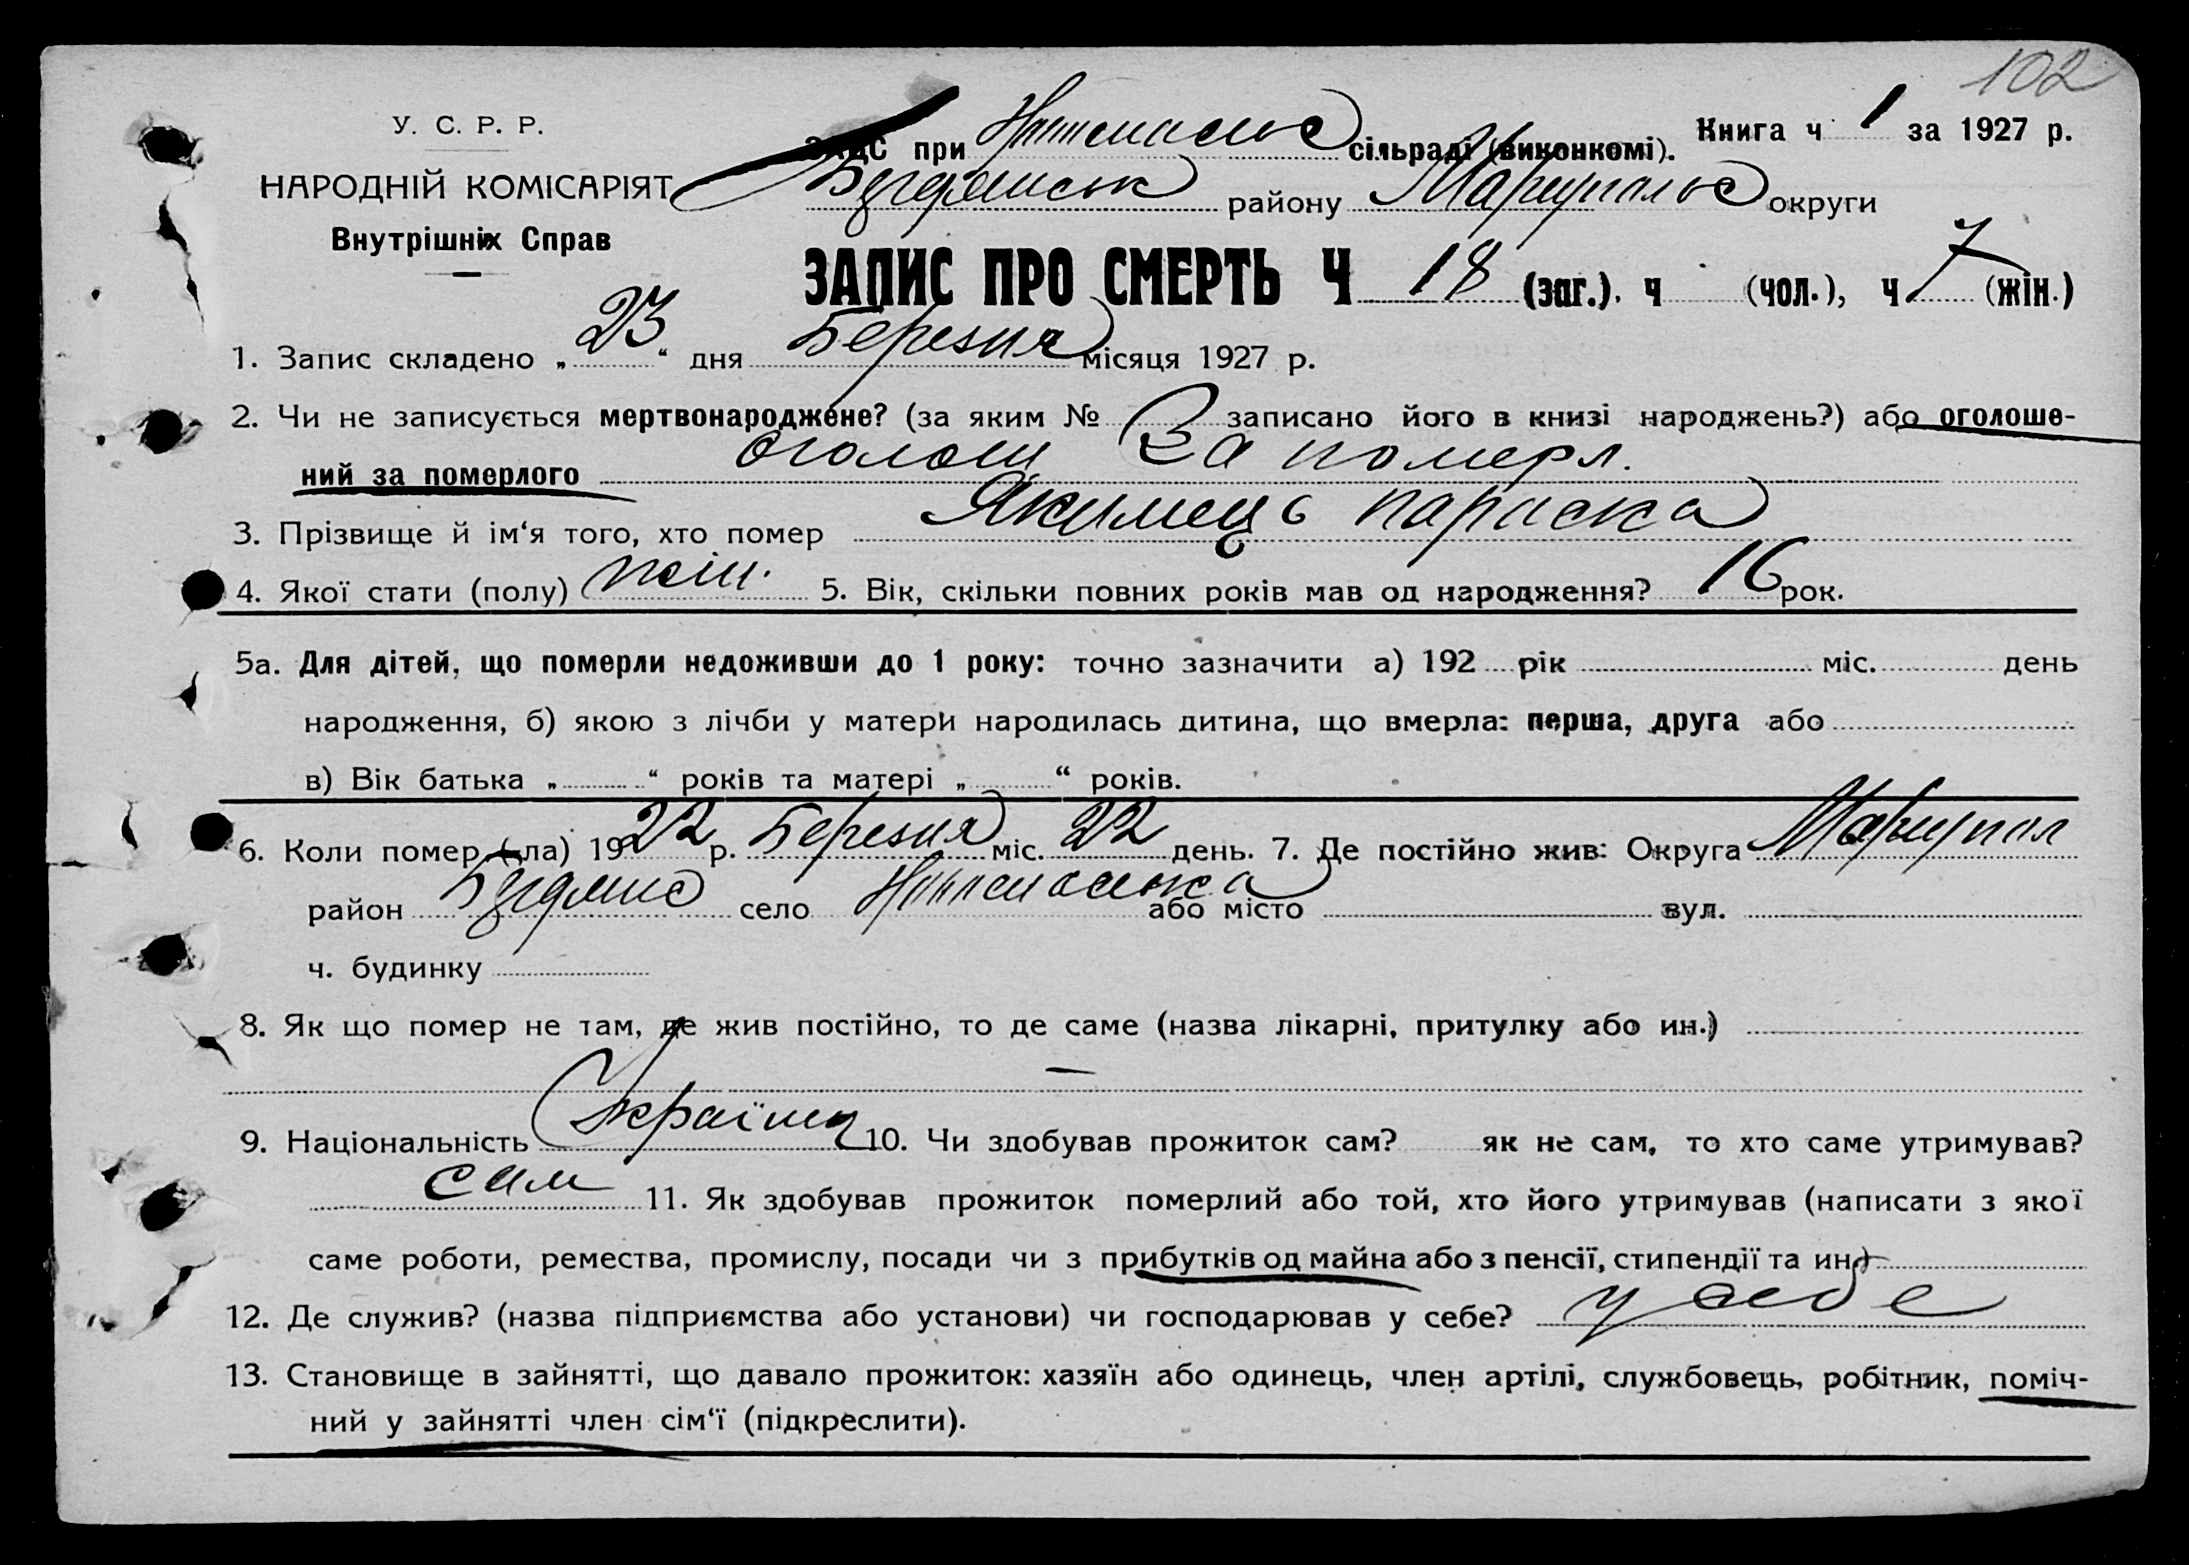 102
У. С. Р. Р.
НАРОДНІЙ КОМІСАРІЯТ
Внутрішніх Справ
ЗАГС при сільраді (виконкомі). Книга ч 1 за 1927 р.
району Маріупольс округи
ЗАПИС ПРО СМЕРТЬ Ч 18 (заг.). ч (чол.), ч 7 (жін.)
1. Запис складено „ 23 “ дня Березня місяця 1927 р.
2. Чи не записується мертвонароджене? (за яким № записано його в книзі народжень?) або оголоше-
ний за померлого оголош за померл.
3. Прізвище й ім‘я того, хто помер Якимець Параска
4. Якої стати (полу) жін. 5. Вік, скільки повних років мав од народження? 16 рок.
5а. Для дітей, що померли недоживши до 1 року: точно зазначити а) 192 рік міс. день
народження, б) якою з лічби у матери народилась дитина, що вмерла: перша, друга або
в) Вік батька „ “ років та матері „ “ років.
6. Коли помер (ла) 1922 р. Березня міс. 22 день. 7. Де постійно жив: Округа Маріупол
район село або місто вул.
ч. будинку
8. Як що помер не там, де жив постійно, то де саме (назва лікарні, притулку або ин.)
—
9. Національність Україн 10. Чи здобував прожиток сам? як не сам, то хто саме утримував?
сам 11. Як здобував прожиток померлий або той, хто його утримував (написати з якої
саме роботи, ремества, промислу, посади чи з прибутків од майна або з пенсії, стипендії та ин.)
12. Де служив? (назва підприємства або установи) чи господарював у себе? у себе
13. Становище в зайнятті, що давало прожиток: хазяїн або одинець, член артілі, службовець, робітник, поміч-
ний у зайнятті член сім‘ї (підкреслити).